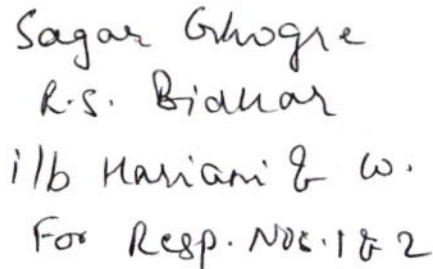 Sagar Ghogre
R.S. Bidkar
i/b Hariani & Co.
For Resp. Nos. 1 & 2